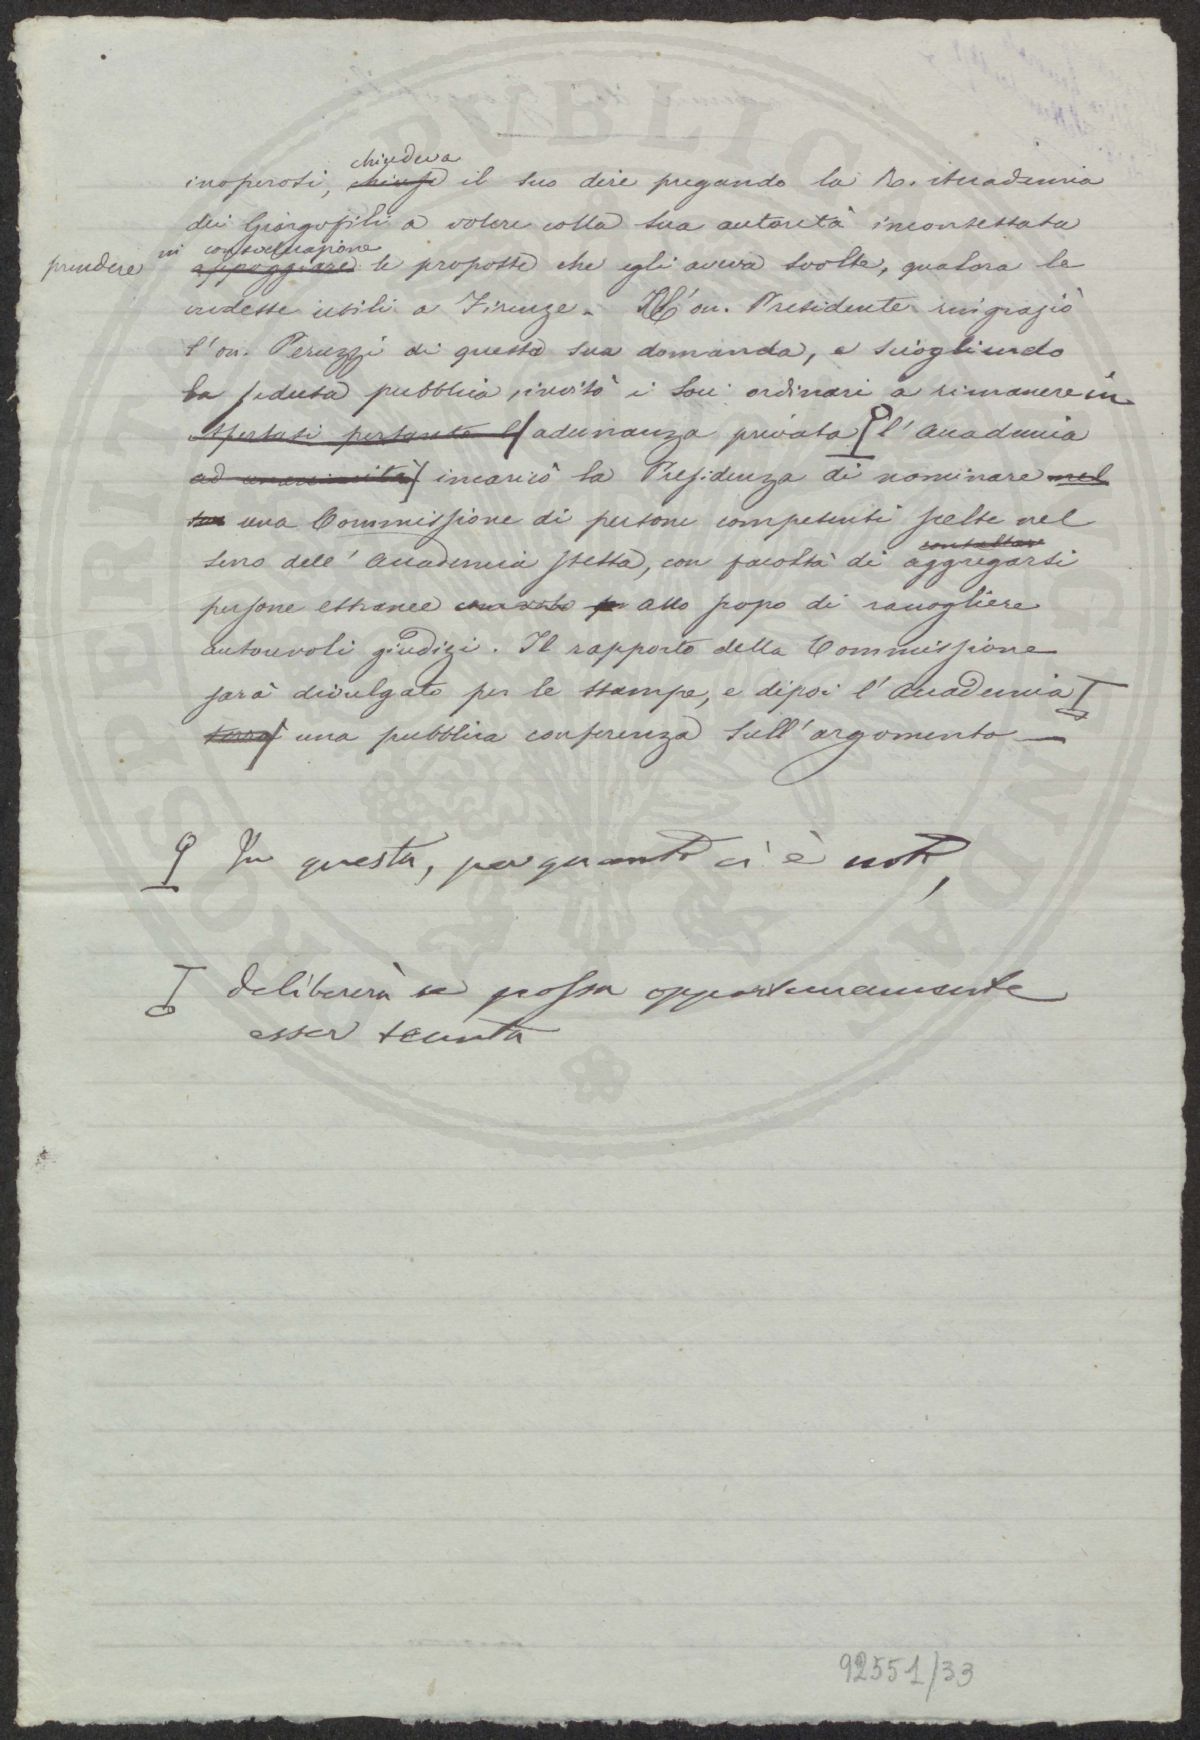 chiudeva
inoperosi, chiuse il suo dire pregando la R. Accademia
dei Georgofili a volere colla sua autorità incontestata
prendere in considerazione
appoggiare le proposte che egli aveva svolte, qualora le
credesse utili a Firenze. L'on. Presidente ringraziò
l'on. Peruzzi di questa sua domanda, e sciogliendo
la seduta pubblica, invitò i soci ordinari a rimanere in
adunanza privata l'Accademia
ad unanimità incaricò la Presidenza di nominare nel
suo una Commissione di persone competenti scelte nel
consultare
seno dell'Accademia stessa, con facoltà di aggregarsi
persone estranee allo scopo di raccogliere
autorevoli giudizi. Il rapporto della Commissione
sarà divulgato per le stampe, e dipoi l'Accademia
terrà una pubblica conferenza sull'argomento
In questa, per quanto ci è noto,
delibererà se possa opportunamente
esser tenuta
92551/33